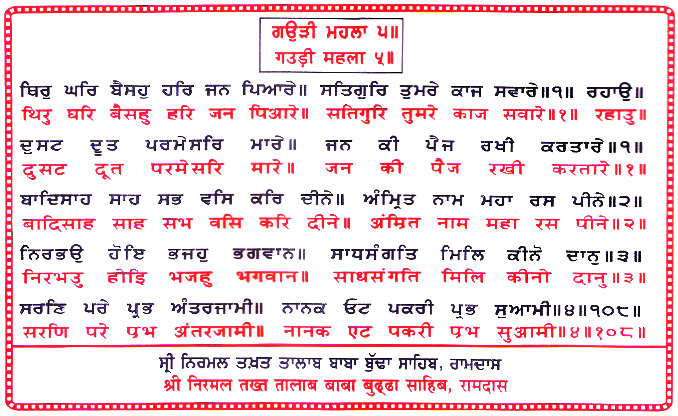 ਗਉੜੀ ਮਹਲਾ ੫॥
गउड़ी महला ५॥
ਥਿਰੁ ਘਰਿ ਬੈਸਹੁ ਹਰਿ ਜਨ ਪਿਆਰੇ॥ ਸਤਿਗੁਰਿ ਤੁਮਰੇ ਕਾਜ ਸਵਾਰੇ॥੧॥ ਰਹਾਉ॥
थिरु घरि बैसहु हरि जन पिआरे॥ सतिगुरि तुमरे काज सवारे॥१॥ रहाउ॥
ਦੁਸਟ ਦੂਤ ਪਰਮੇਸਰਿ ਮਾਰੇ॥ ਜਨ ਕੀ ਪੈਜ ਰਖੀ ਕਰਤਾਰੇ॥੧॥
दुसट दूत परमेसरि मारे॥ जन की पैज रखी करतारे॥१॥
ਬਾਦਿਸਾਹ ਸਾਹ ਸਭ ਵਸਿ ਕਰਿ ਦੀਨੇ॥ ਅੰਮ੍ਰਿਤ ਨਾਮ ਮਹਾ ਰਸ ਪੀਨੇ॥੨॥
बादिसाह साह सभ वसि करि दीने॥ अंम्रित नाम महा रस पीने॥२॥
ਨਿਰਭਉ ਹੋਇ ਭਜਹੁ ਭਗਵਾਨ॥ ਸਾਧਸੰਗਤਿ ਮਿਲਿ ਕੀਨੋ ਦਾਨੁ॥੩॥
निरभउ होइ भजहु भगवान॥ साधसंगति मिलि कीनो दानु॥३॥
ਸਰਣਿ ਪਰੇ ਪ੍ਰਭ ਅੰਤਰਜਾਮੀ॥ ਨਾਨਕ ਓਟ ਪਕਰੀ ਪ੍ਰਭ ਸੁਆਮੀ॥੪॥੧੦੮॥
सरणि परे प्रभ अंतरजामी॥ नानक एट पकरी प्रभ सुआमी॥४॥१०८॥
ਸ੍ਰੀ ਨਿਰਮਲ ਤਖ਼ਤ ਤਾਲਾਬ ਬਾਬਾ ਬੁੱਢਾ ਸਾਹਿਬ, ਰਾਮਦਾਸ
श्री निरमल तख्त तालाब बाबा बुढ्ढा साहिब, रामदास